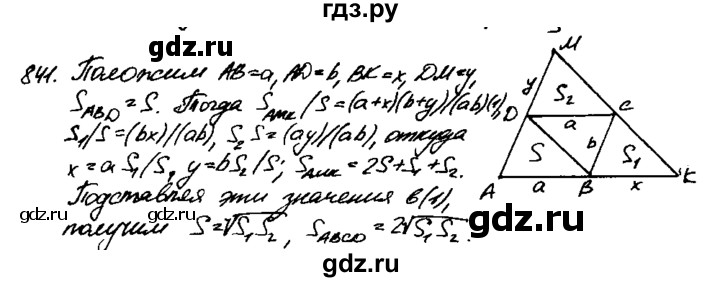 гдз.ру
841. Положим AB=a, AD=b, BK=x, DM=y,
S_ABD=S. Тогда S_AMK/S=(a+x)(b+y)/(ab)(1),
S₁/S=(bx)/(ab), S₂S=(ay)/(ab), откуда
x=aS₁/S, y=bS₂/S; S_AMK=2S+S₁+S₂.
Подставляя эти значения в(1),
получим S=√S₁S₂, S_ABCD=2√S₁S₂.
M
y
S₂
D
a
C
S
b
S₁
A
a
B
x
K
gdz.ru
gdz.ru
gdz.ru
gdz.ru
gdz.ru
gdz.ru
gdz.ru
gdz.ru
gdz.ru
gdz.ru